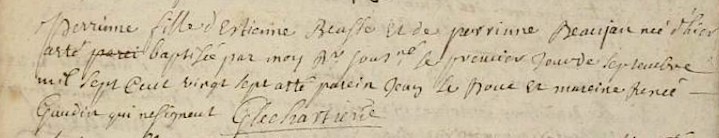 Perrinne fille d'Estienne Beasse et de perrinne Beaujan neé d'hier
a esté parei baptiseé par moy pr. sous.né le premier Jour de septembre
mil sept cent vingt sept atté parein Jean le houe et mareine Reneé
Gaudin qui ne signent GLechartierie